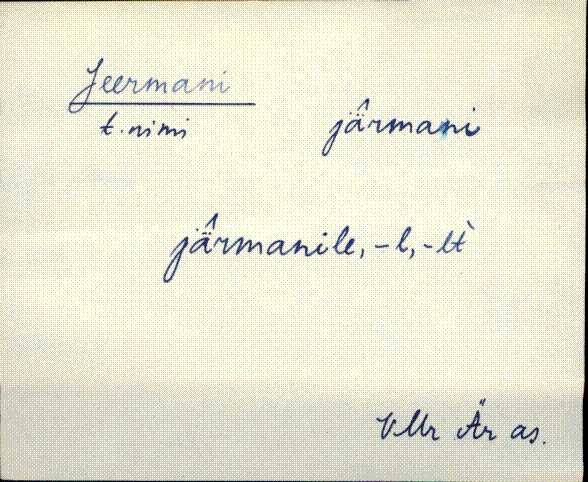 Jeermani
t. nimi
jä̂rmani
jä̂rmanile, -l, -lt̀
VMr Är as.